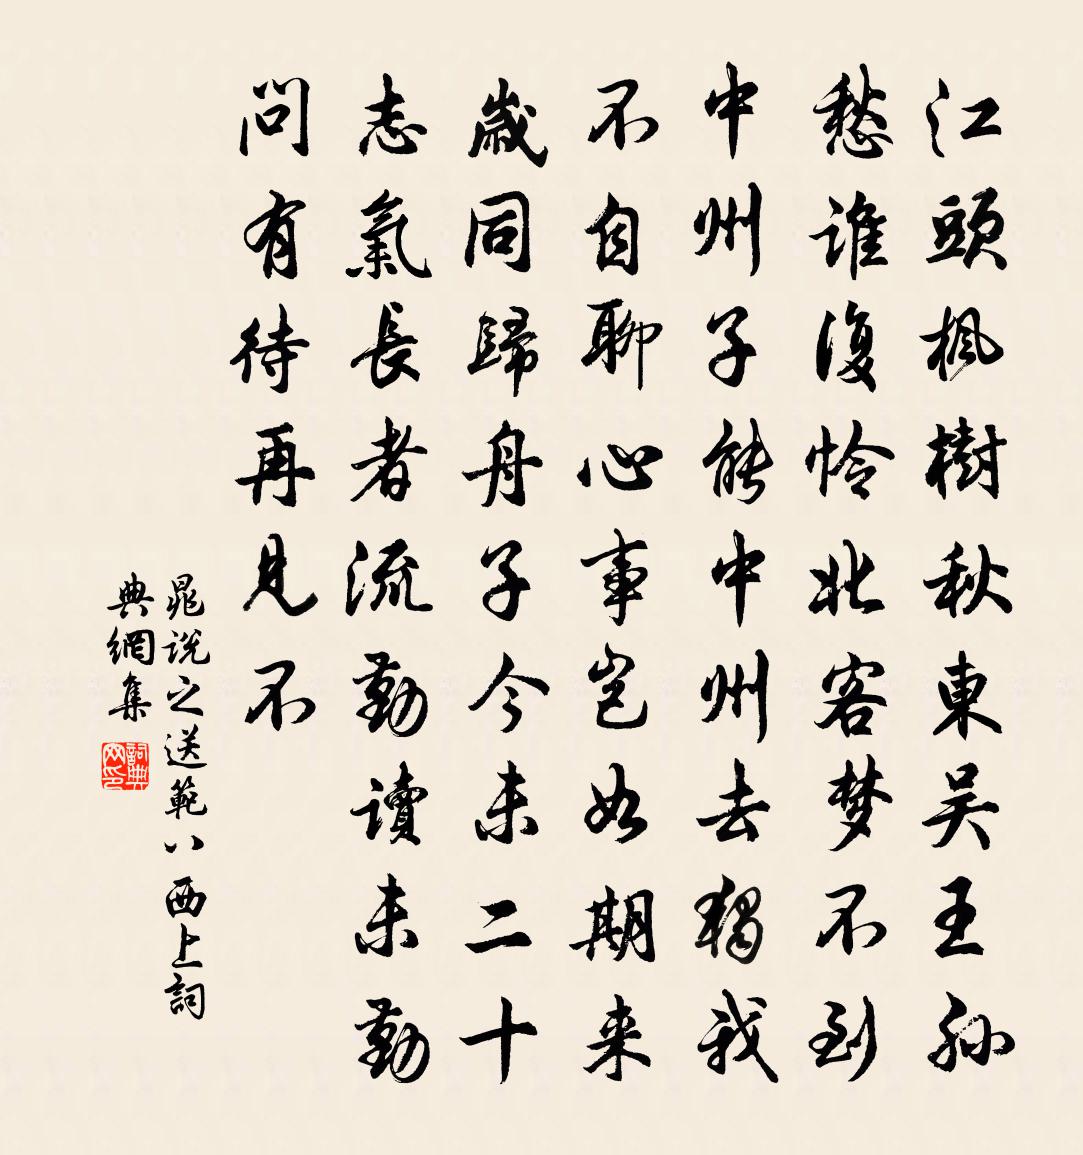 江頭楓樹秋東吴王孫
愁誰復怜北客梦不到
中州子能中州去獨我
不自聊心事豈如期来
歲同歸舟子今未二十
志氣長者流勤讀未勤
問有待再見不
晁説之送範八西上詞
典網集
詞典網印